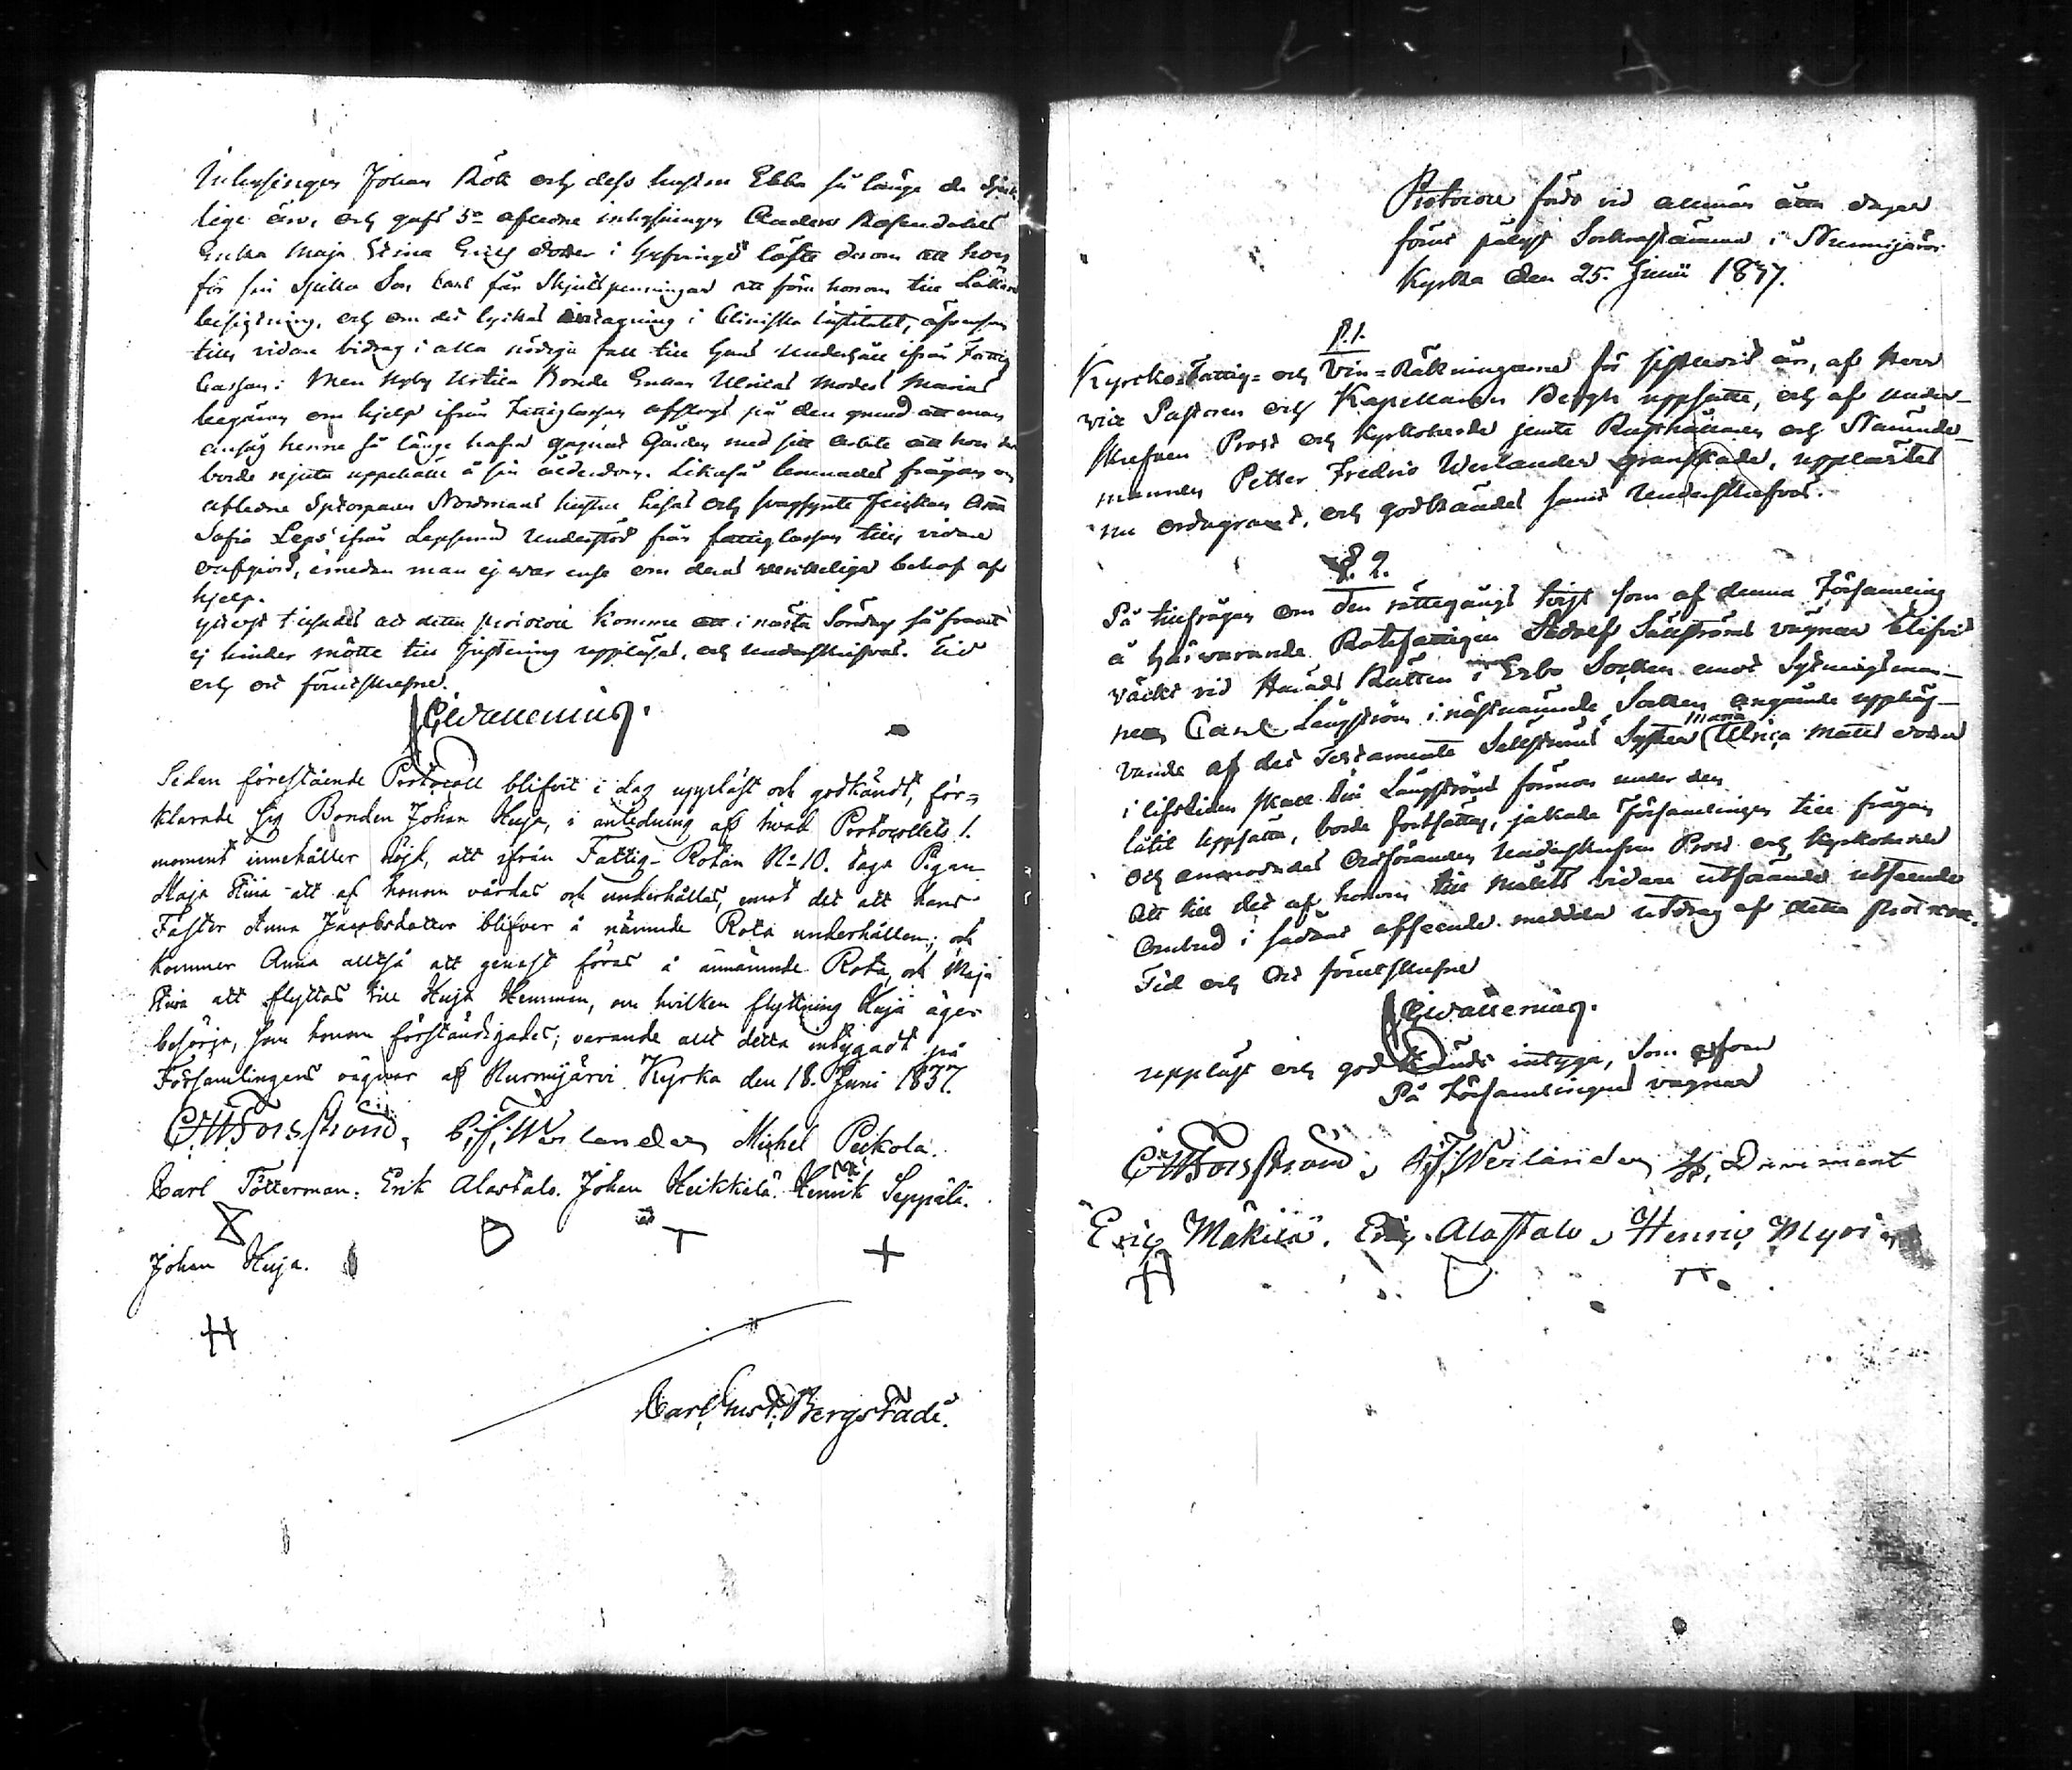 Inhysingen Johan Rök och dess hustru Ebba så länge de sjuk-
lige äro, och gafs 5o aflidne inhysingen Anders Rosendahls
Enka Maja Stina Erichsdotter i löfte derom att hon
för sin sjuka Son Carl får Skjutspenningar att föra honom till Läkare
besigtning, och om det lyckas intagning i Cliniska institutet, äfvensom
tills vidare bidrag i alla nödiga fall till hans underhåll ifrån Fattig
Cassan: Men Nyby Urtila Bonde Enkan Ulricas Moders Marias
begäran om hjelp ifrån Fattigcassan afslogs på den grund att man
ansåg henne så länge hafva gagnat Gården med sitt arbete att hon der
borde njuta uppehälle å sin ålderdom. Likaså lemnades frågan om
aflidne Nordmans hustru Lisas och svagsynte Flickan Anna
Sofia Leps ifrån Lepsema Understöd från fattigcassan tills vidare
oafgjord, emedan man ej war ense om deras werkeliga behof af
hjelp.
ytterst tillsades att detta protocoll komme att i nästa Söndag så framt
ej hinder mötte till Justering uppläsas, och underskrifvas. Tid
och ort förutskrefne.
Sedan förestående Protocoll blifvit i dag uppläst och godkändt, för-
klarade sig Bonden Johan Kuja, i anledning af hvad Protocollets 1.
moment innehåller nöjd, att ifrån Fattig-Rotan No 10. taga Pigan
Maja Stina att af honom vårdas och underhållas, emot det att hans
Faster Anna Jacobsdotter blifver i nämnde Rota underhållen; och
kommer Anna alltså att genast föras å nämnde Rota, och Maja
Stina att flyttas till Kuja Hemman, om hvilken flyttning Kuja äger
besörja, som honom förständigades; varande allt detta intygadt på
Församlingens vägnar af Nurmijärvi Kyrka den 18. Juni 1837.
C.W. Forsström. P.F. Werlander Michel Peikola.
Carl Tötterman. Erik Alastalo. Johan Heikkilä. Henrik Seppälä.
Johan Kuja.
Carl Gust. Bergstadi.
Protocoll fördt vid allmän åtta dagar
förut pålyst Sockenstämma i Nurmijärvi
Kyrka den 25. Junii 1837.
§.1.
Kyrcko-Fattig- och Vin-Räkningarna för sistledit år, af Herr
vice Pastoren och Kapellanen Bergh uppsatte, och af under-
skrefven Prost och Kyrkoherde jemte Rusthållaren och Nämnde-
mannen Petter Fredric Werlander granskade, upplästes
nu ordagrant, och godkändes samt Underskrefvos.
§. 2.
På tillfrågan om den rättegångs tvist som af denna Församling
å härvarande Rotefattigen Adolf Sällströms vägnar blifvit
väckt vid Härads Rätten i Esbo Socken emot Sytningsman-
nen Carl Långström i nästnämnde Socken angående upphäf-
vande af det Testamente Sällströms Syster Maria Ulrica Matts dotter
i lifstiden skall till Långströms förmon under den
låtit uppsätta, borde fortsättas, jakade Församlingen till frågan
och anmodades Ordföranden Underskrefven Prost och Kyrkoherde
att till det af honom till målets vidare utförande utseende
Ombud i sådant afseende meddela utdrag af detta protocoll.
Tid och Ort förutskrefne
uppläst och godkändt intyga, som ofvan
På Församlingens vägnar
C.W. Forsström. P.F. Werlander H. Durement
Eric Mäkilä. Eric Alastalo. Henric Myri